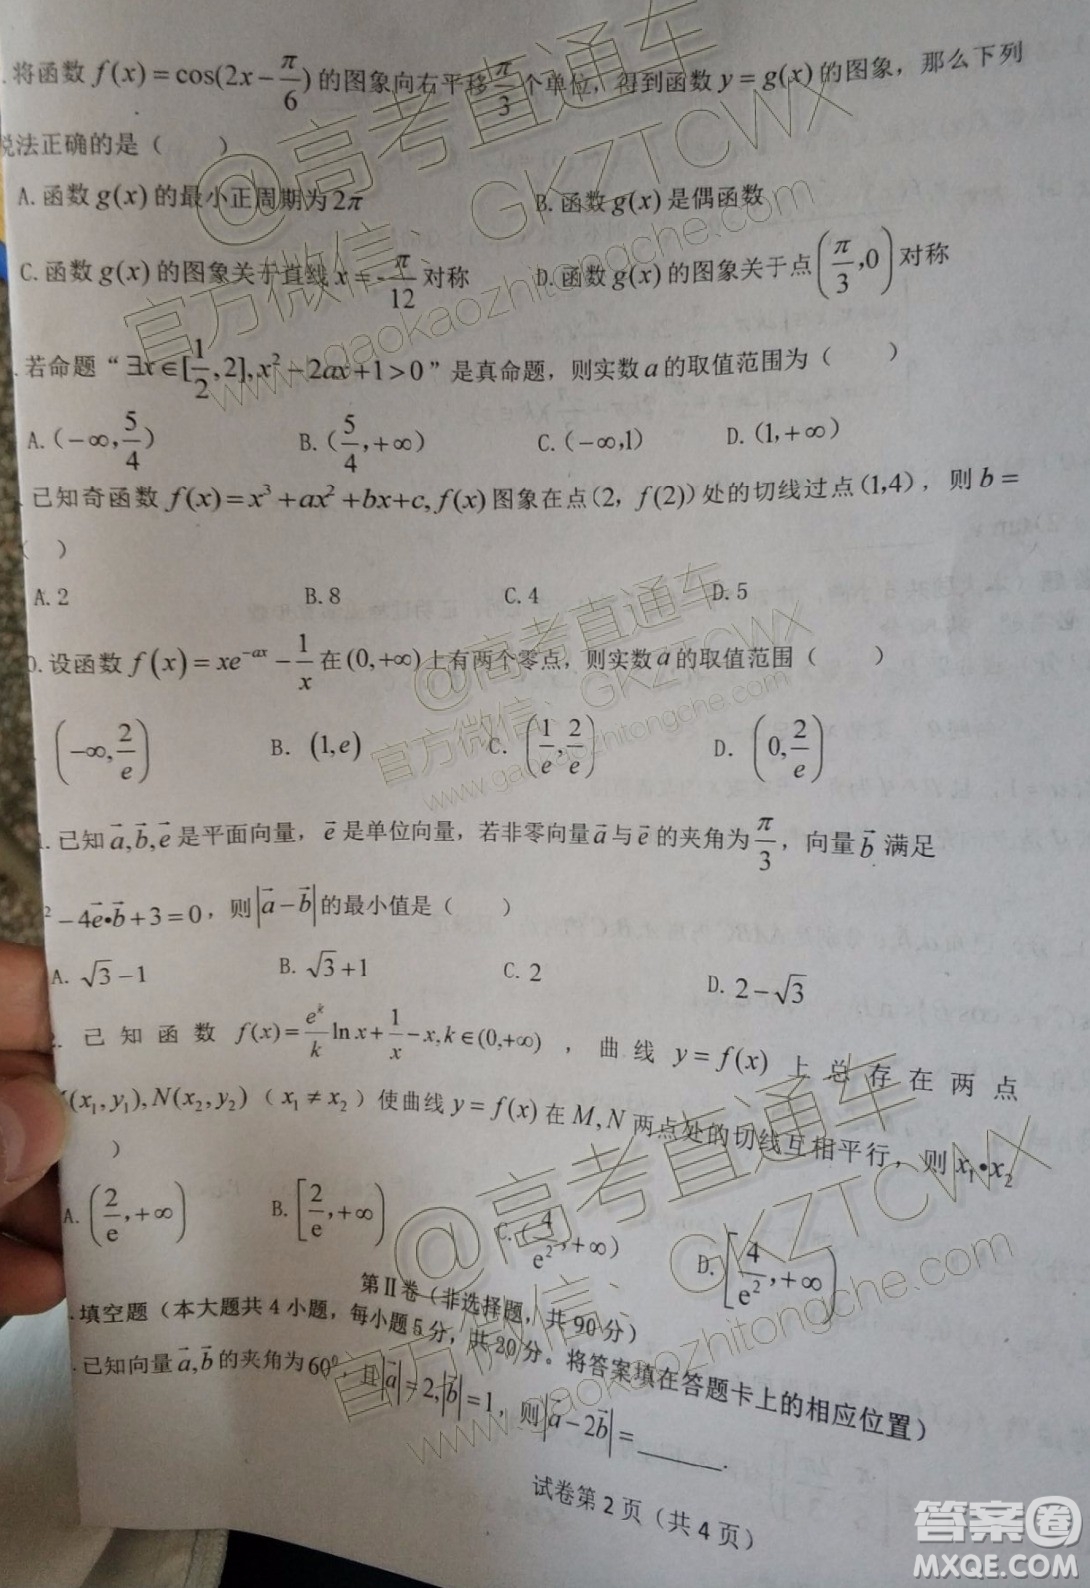 .将函数 f(x)=cos(2x-π/6)的图象向右平移π/3个单位，得到函数 y=g(x)的图象，那么下列
说法正确的是（ ）
A.函数g(x)的最小正周期为2π B.函数g(x)是偶函数
C.函数g(x)的图象关于直线 x=-π/12对称 D.函数g(x)的图象关于点(π/3,0)对称
.若命题“∃x∈[1/2,2],x²-2ax+1>0”是真命题，则实数a的取值范围为（ ）
A.(-∞,5/4) B.(5/4,+∞) C.(-∞,1) D.(1,+∞)
.已知奇函数 f(x)=x³+ax²+bx+c,f(x)图象在点(2，f(2))处的切线过点(1,4)，则b=
（ ）
A.2 B.8 C.4 D.5
0.设函数f(x)=xe^{-ax}-1/x在(0,+∞)上有两个零点，则实数a的取值范围（ ）
. (-∞,2/e) B. (1,e) C. (1/e,2/e) D. (0,2/e)
1.已知a⃗,b⃗,e⃗是平面向量，e⃗是单位向量，若非零向量a⃗与e⃗的夹角为π/3，向量b⃗满足
²-4e⃗•b⃗+3=0，则|a⃗-b⃗|的最小值是（ ）
A. √3-1 B. √3+1 C. 2 D. 2-√3
2. 已知函数 f(x)=e^k/k lnx+1/x-x,k∈(0,+∞)，曲线 y=f(x)上总存在两点
(x₁,y₁),N(x₂,y₂)（x₁≠x₂）使曲线y=f(x)在M,N两点处的切线互相平行，则x₁•x₂
）
A. (2/e,+∞) B. [2/e,+∞) C. (4/e²,+∞) D. [4/e²,+∞)
第Ⅱ卷（非选择题，共90分）
.填空题（本大题共4小题，每小题5分，共20分。将答案填在答题卡上的相应位置）
.已知向量a⃗,b⃗的夹角为60⁰，且|a⃗|=2,|b⃗|=1，则|a⃗-2b⃗|=______.
试卷第2页（共4页）
@高考直通车
官方微信：GKZTCWX
www.gaokaozhitongche.com
@高考直通车
官方微信：GKZTCWX
www.gaokaozhitongche.com
@高考直通车
官方微信：GKZTCWX
www.gaokaozhitongche.com
答案圈
MXQE.COM